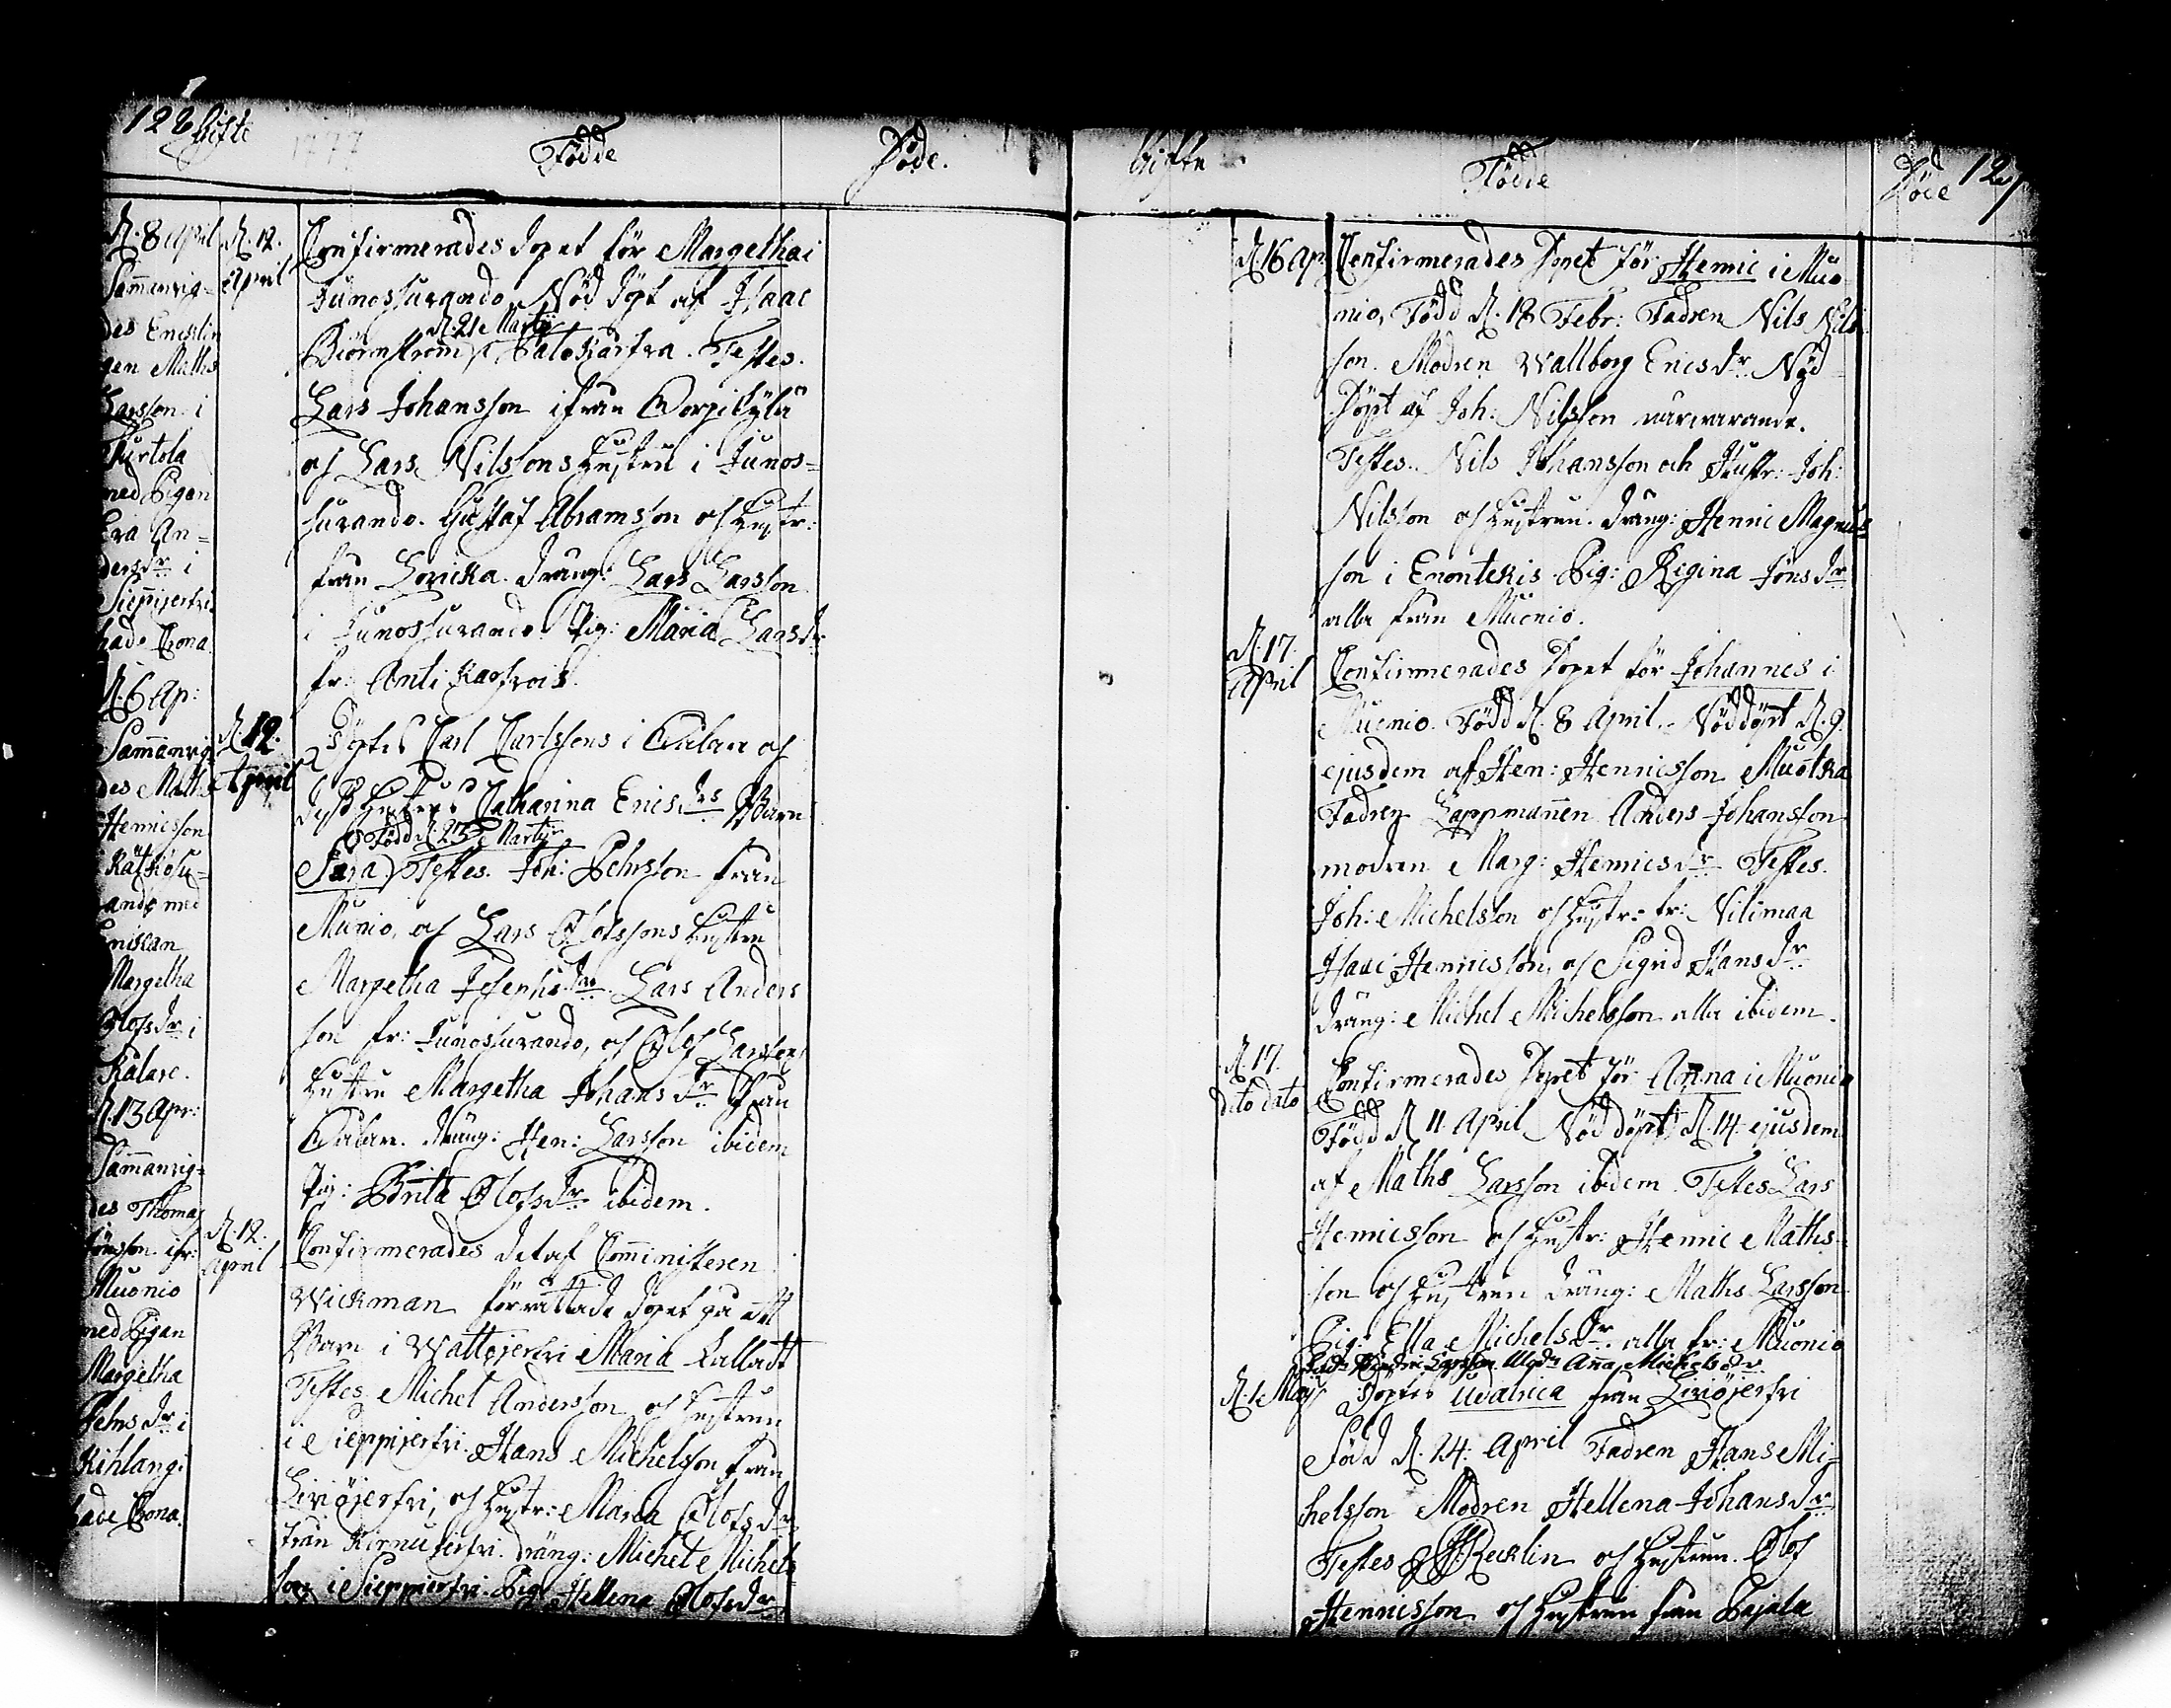 126 Gifte
1777
Födde
Döde.
D. 8 April
Sam̄anvig-
des Encklin
gen Maths
Larsson i
Turtola
med Pigan
Eva An-
ders dr i
Sieppijerfvi
hade Crona.
D. 6 Ap:
Sam̄anvig
des Maths
Henricsson
Kätkösu-
ando med
Enkan
Margetha
Olofs dr i
Kålare.
D. 13 Apr:
Sam̄anvig-
des Thomas
Jönsson ifr:
Muonio
med Pigan
Margetha
Pehrs dr i
Kihlangi
hade Crona.
D. 12.
April
Confirmerades dopet för Margetha i
Junossuando, Nöd döpt af Isaac
d. 21 Martij
Biörnström i Palokårfva. Testes.
Lars Johansson ifrån Torpikylä
och Lars Nilssons hustru i Junos-
suando. Gustaf Abramsson och hustr:
från Lovicka. dräng: Lars Larsson
i Junossuando. Pig: Maria Lars dr
fr: Anti
D. 12.
April
Döptes Carl Carlssons i Kalare och
dess hustrus Catharina Erics drs Barn
Född d. 23 Martij
Sara) Testes. Joh: Pehrsson från
Muonio, och Lars Olofssons hustru
Margetha Josephs dr. Lars Anders
son fr: Junossuando, och Olof Larssons
hustru Margetha Johans dr från
Kalare. dräng: Hen: Larsson ibidem
Pig: Brita Olofs dr ibidem.
D. 12.
April
Confirmerades det af Com̄inisteren
Wickman förrättade dopet på ett
Barn i Wattojerfvi Maria kalladt
Testes Michel Andersson och hustrun
i Sieppijerfvi. Hans Michelsson från
Liviöjerfvi, och hustr: Maria Olofs dr
från Kirnujerfvi. dräng: Michel Michels-
son i Sieppijerfvi. Pig: Hellena Olofs dr
Gifte
Födde
Döde 127
D. 16 Ap.
Confirmerades Dopet för Henric i Muo
nio, Född d. 18 Febr: Fadren Nils Nils
son. Modren Wallborg Erics dr Nöd-
Döpt af Joh: Nilsson närvarande.
Testes. Nils Johansson och Hustr: Joh:
Nilsson och hustrun. dräng: Henric Magnus
son i Enontekis Pig: Regina Jöns dr
alla från Muonio.
D. 17.
April
Confirmerades Dopet för Johannes i
Muonio. Född d. 8 April. Nöddöpt d. 9
ejusdem af Hen: Henricsson Muotka
Fadren Lappman̄en Anders Johansson
modren Marg: Henrics dr Testes.
Joh: Michelsson och hustr: fr: Vilimaa
Isaac Henricsson, och Sigrid Hans dr
dräng: Michel Michelsson alla ibidem.
D. 17.
dito dato
Confirmerades Dopet för Anna i Muonio
Född d. 11 April, Nöd döpt d. 14 ejusdem
af Maths Larsson ibidem. Testes Lars
Henricsson och hustr: Henric Maths-
son och hustrun dräng: Maths Larsson
Pig: Ella Michels dr alla fr: Muonio
Larsson Modr: An̄a Michels dr
D. 1 Maij
Döptes Udalrica från Liviöjerfvi
Född d. 24. April Fadren Hans Mi-
helsson Modren Hellena Johans dr
Testes Recklin och hustrun. Olof
Henricsson och hustrun från Pajala